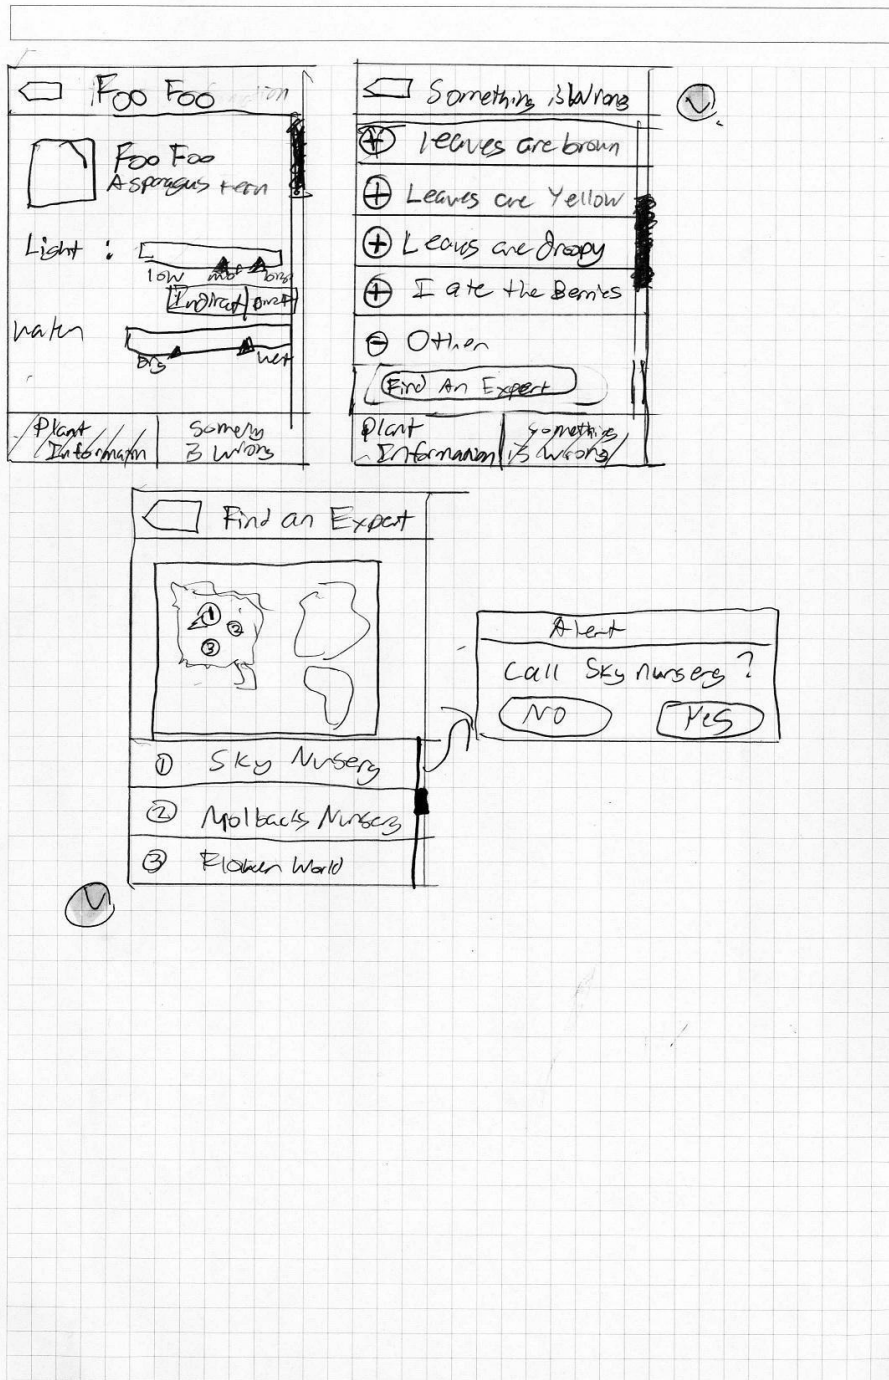 Foo Foo
Foo Foo
Asparagus Fern
Light :
low med brg
Indirect Direct
water
Dry wet
Plant
Information
Something
is Wrong
Something is Wrong
Leaves are brown
Leaves are Yellow
Leaves are droopy
I ate the Berries
Other
Find An Expert
Plant
Information
Something
is Wrong
Find an Expert
1
2
3
1 Sky Nursery
2 Molbacks Nursery
3 Flower World
Alert
Call Sky nursery ?
No Yes